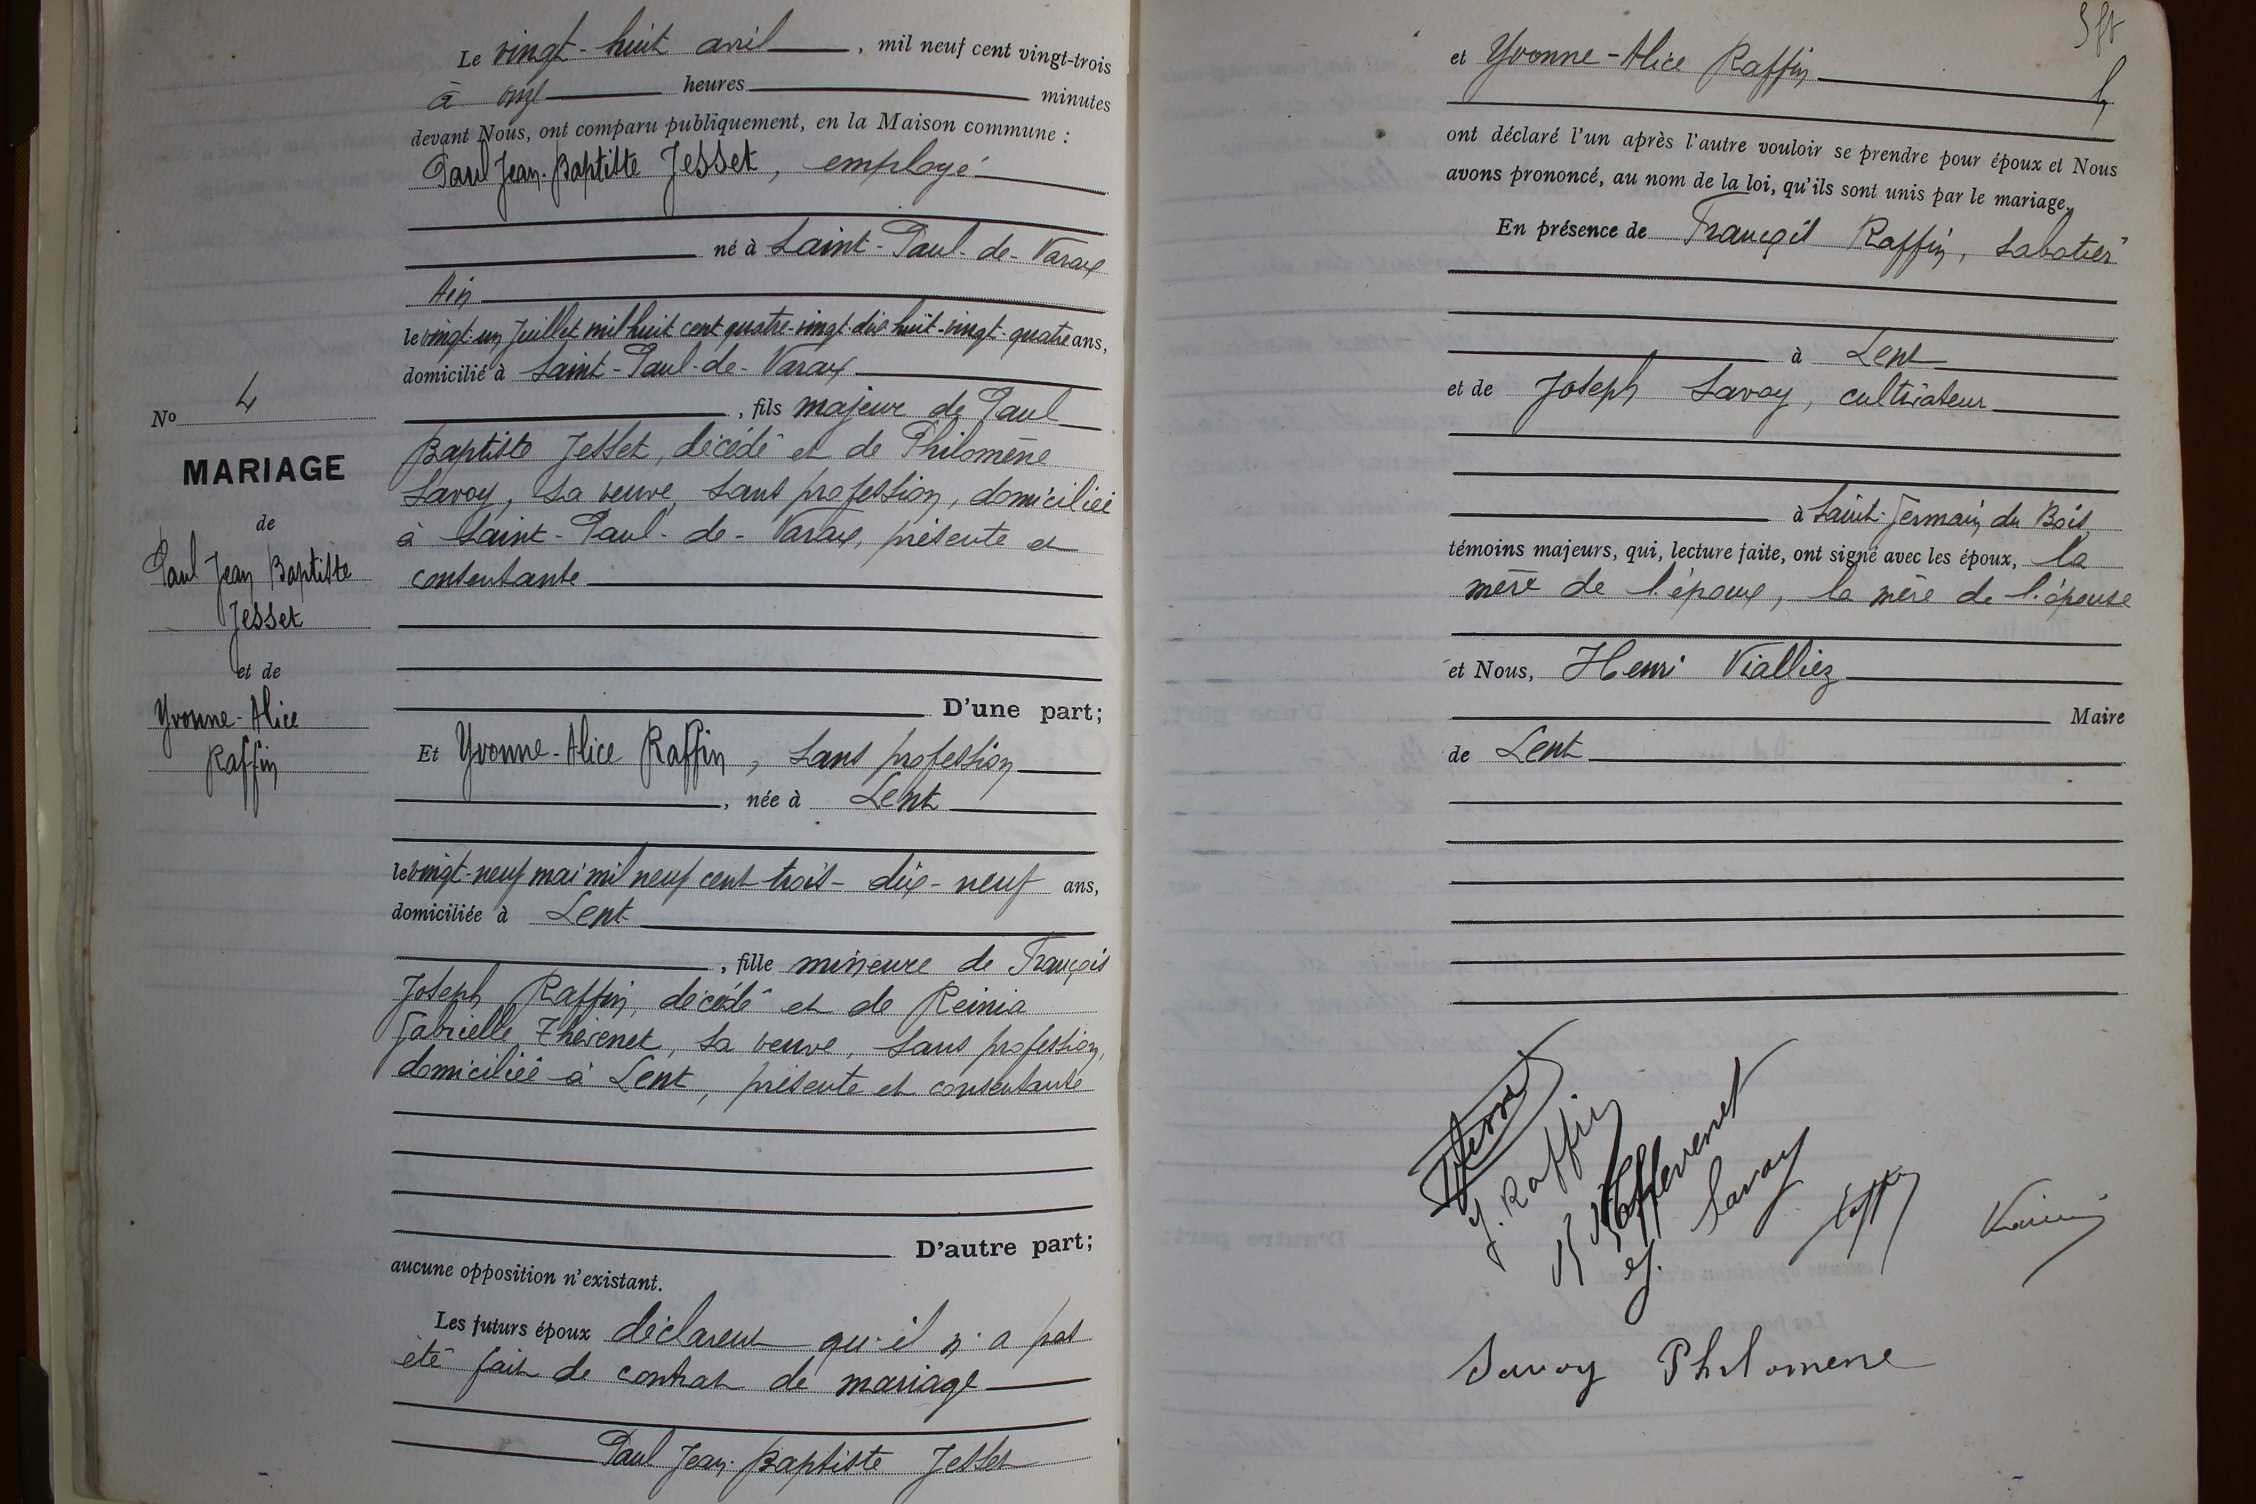 Le vingt-huit avril, mil neuf cent vingt-trois
à onze heures minutes
devant Nous, ont comparu publiquement, en la Maison commune :
Paul Jean-Baptiste Jesset, employé
né à Saint-Paul-de-Varax
Ain
le vingt-un Juillet mil huit cent quatre-vingt dix huit-vingt-quatre ans,
domicilié à Saint-Paul-de-Varax
, fils majeur de Paul
Baptiste Jesset, décédé et de Philomène
Savoy, sa veuve, sans profession, domiciliée
à Saint-Paul-de-Varax, présente et
consentante
D'une part;
Et Yvonne-Alice Raffin, sans profession
, née à Lent
le vingt-neuf mai mil neuf cent trois-dix-neuf ans,
domiciliée à Lent
, fille mineure de François
Joseph Raffin, décédé et de Reinia
Gabrielle Thévenet, sa veuve, sans profession,
domiciliée à Lent, présente et consentante
D'autre part;
aucune opposition n'existant.
Les futurs époux déclarent qu'il n'a pas
été fait de contrat de mariage
Paul Jean-Baptiste Jesset
No 4
MARIAGE
de
Paul Jean Baptiste
Jesset
et de
Yvonne-Alice
Raffin
et Yvonne-Alice Raffin
ont déclaré l'un après l'autre vouloir se prendre pour époux et Nous
avons prononcé, au nom de la loi, qu'ils sont unis par le mariage.
En présence de François Raffin, sabotier
à Lent
et de Joseph Savoy, cultivateur
à Saint-Germain du Bois
témoins majeurs, qui, lecture faite, ont signé avec les époux, la
mère de l'époux, la mère de l'épouse
et Nous, Henri Vialliez
Maire
de Lent
Y. Raffin
J. Savoy
Savoy Philomene